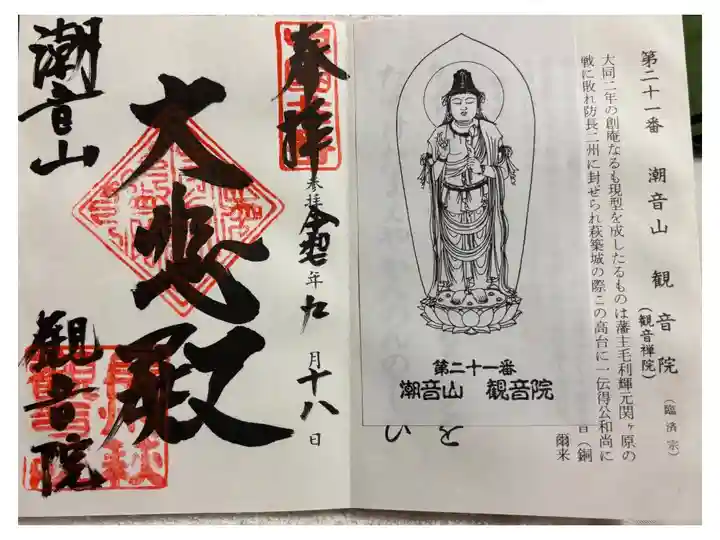 第二十一番 潮音山 観音院 (臨済宗)
(観音禅院)
大同二年の創庵なるも現型を成したるものは藩主毛利輝元関ヶ原の
戦に敗れ防長二州に封ぜられ萩築城の際この高台に一伝得公和尚に
音(銅
爾来
を
い
第二十一番
潮音山 観音院
奉拝
参拝令和七年九月十八日
大悲殿
潮音山
觀音院